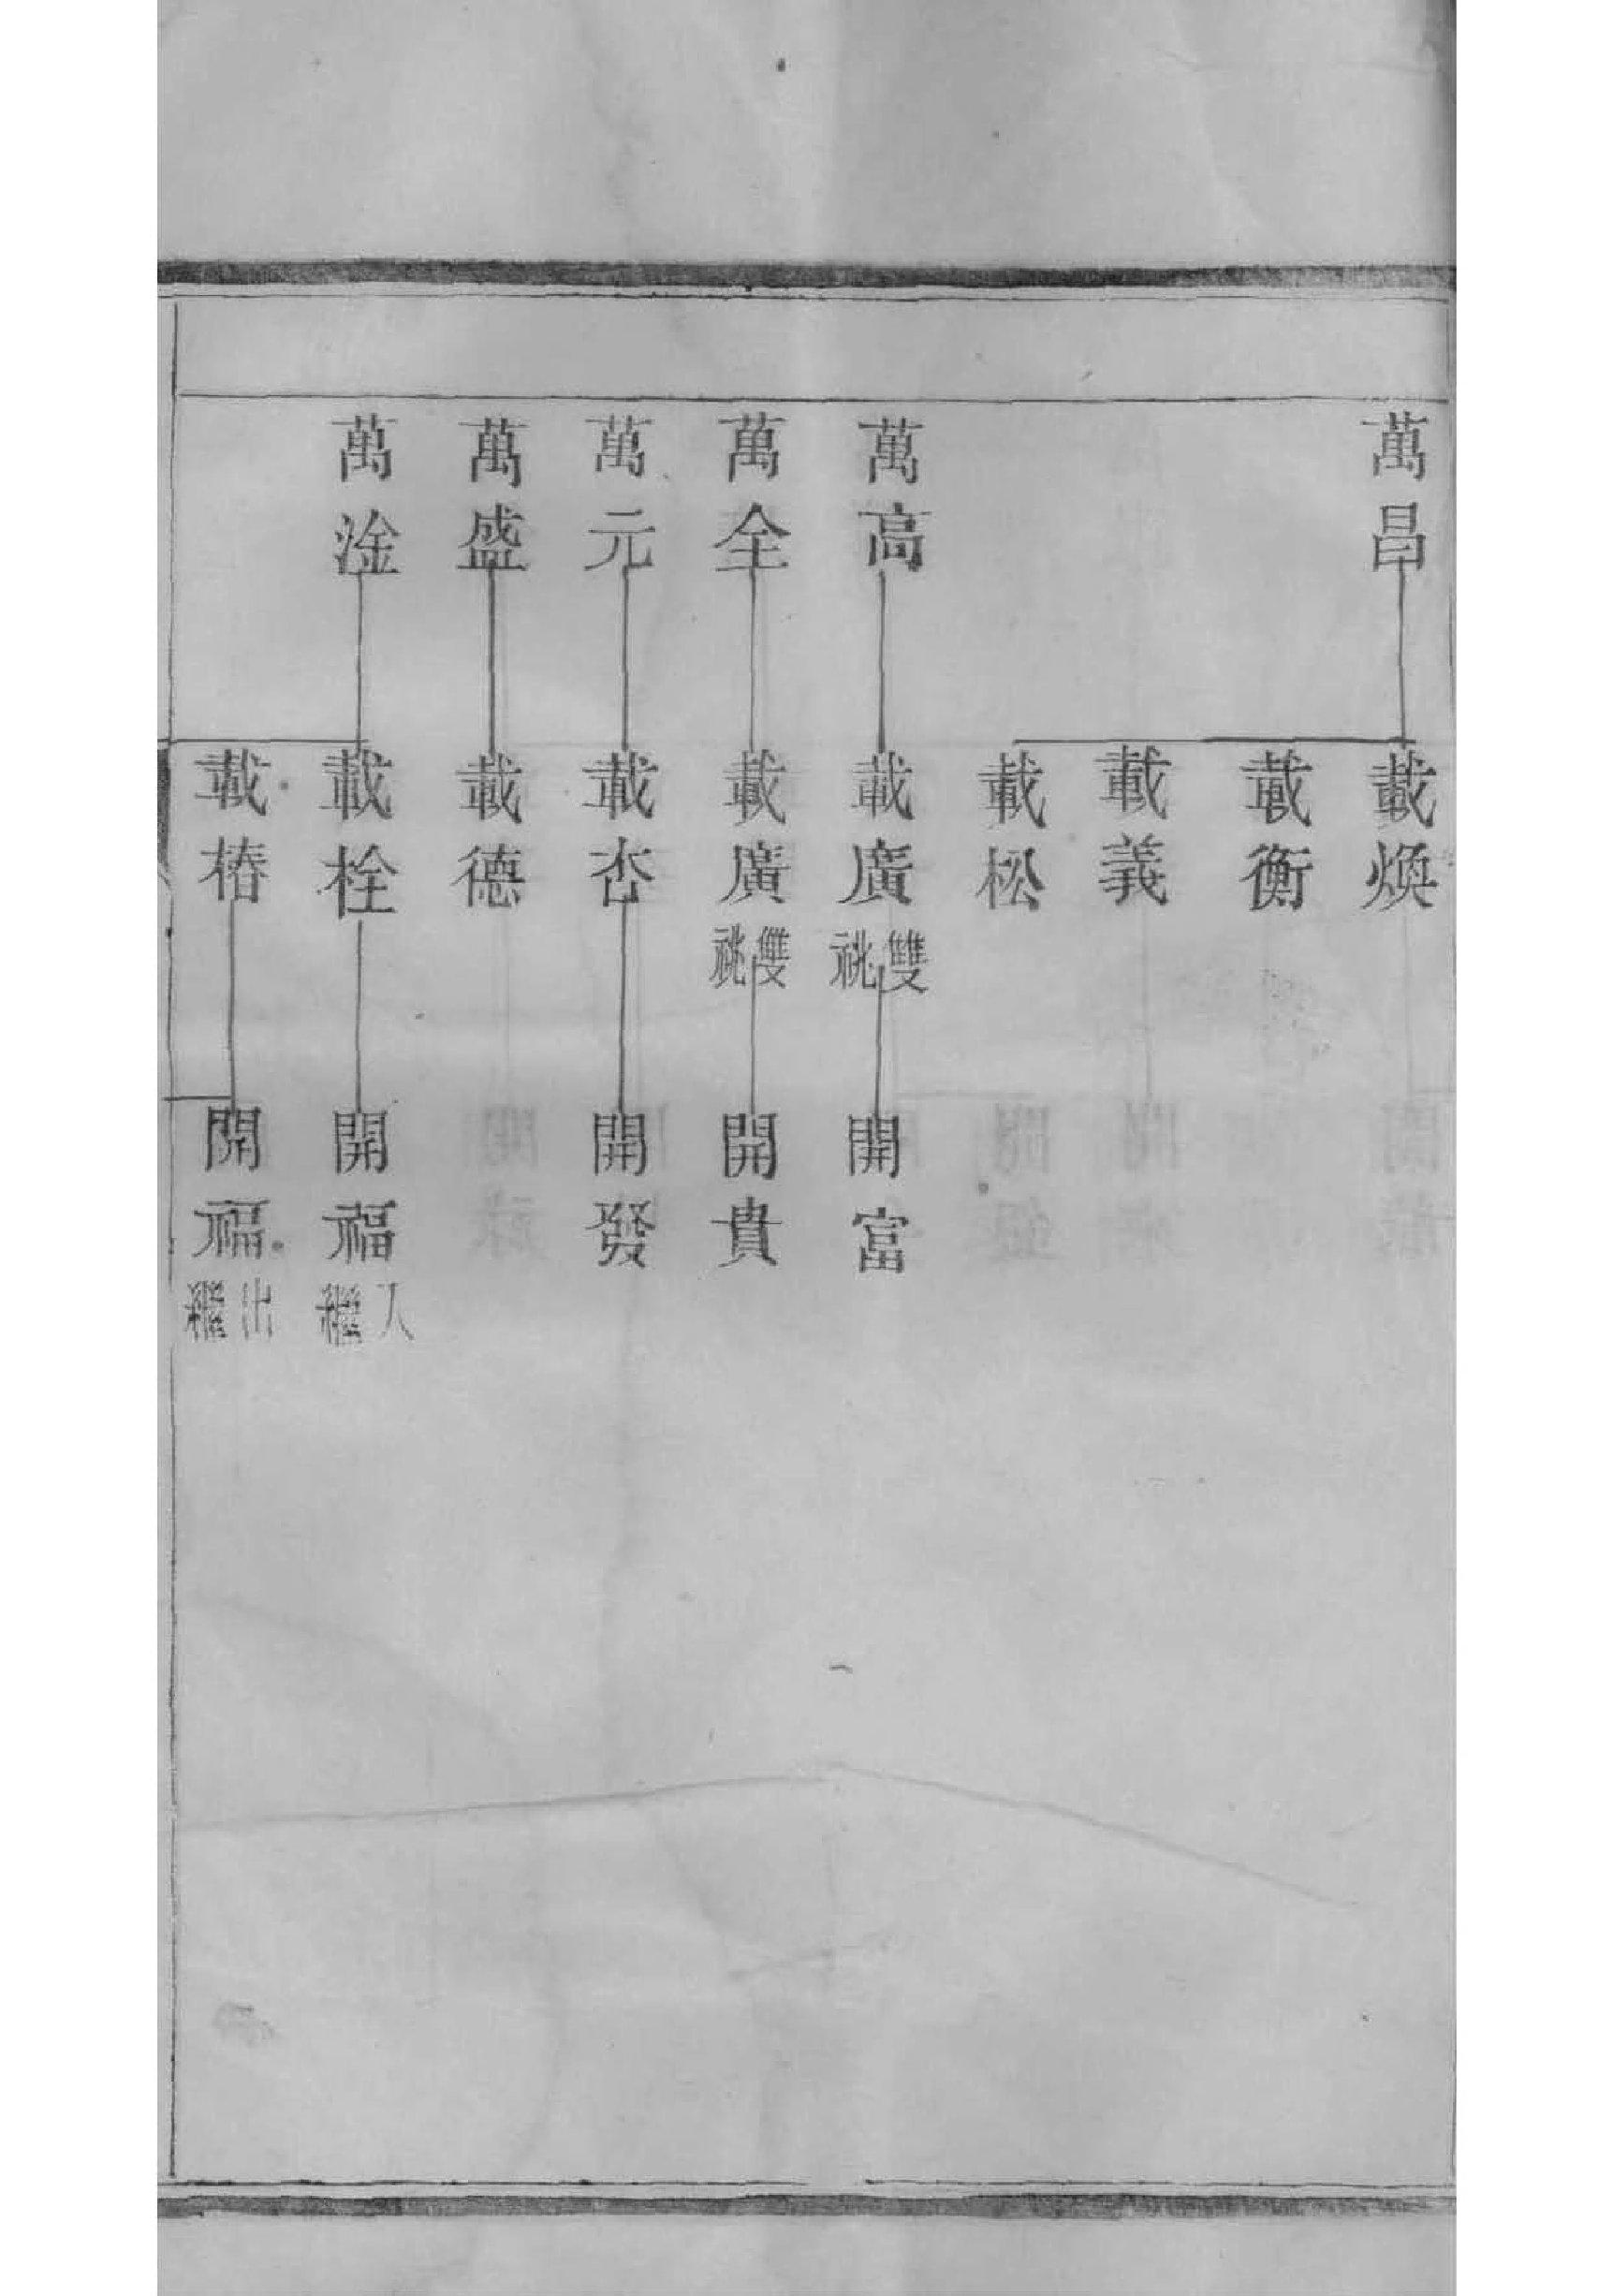 萬昌
載煥
載衡
載義
載松
萬高
載廣
雙祧
開富
萬全
載廣
雙祧
開貴
萬元
載杏
開發
萬盛
載德
萬淦
載栓
開福
入繼
載椿
開福
出繼